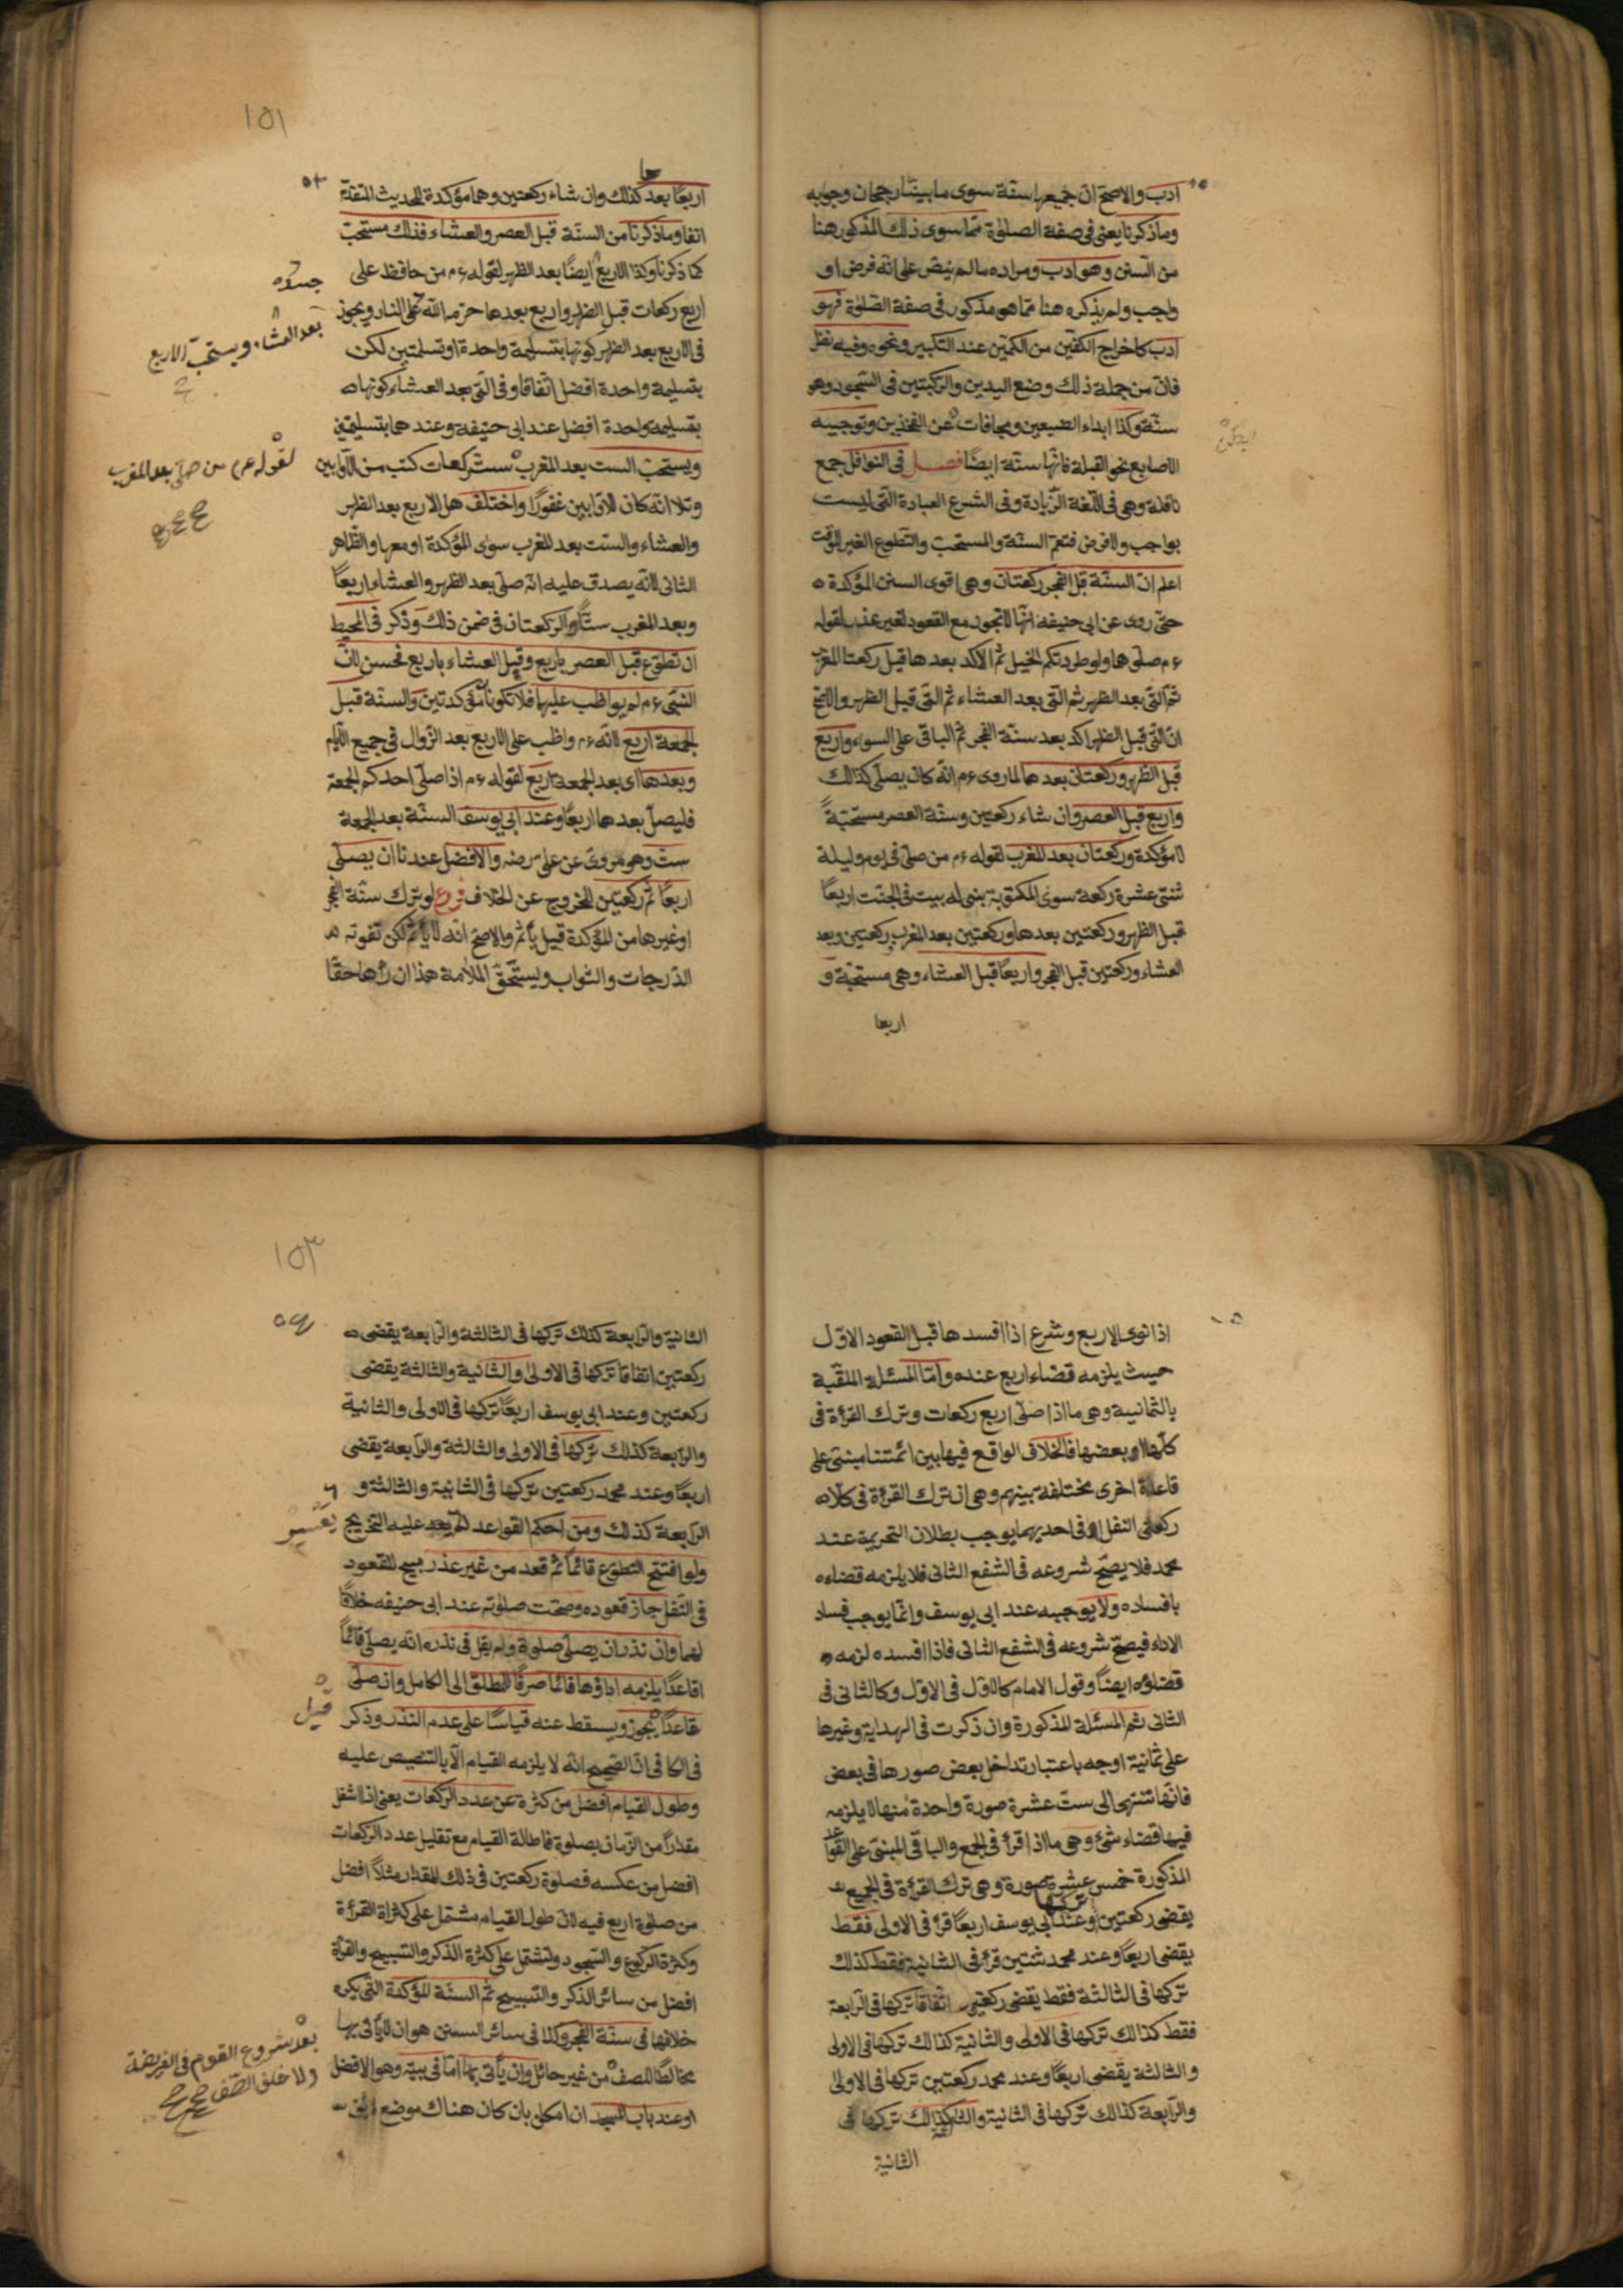 ادب والاصح ان جميعها سنة سوى ما بينا رجحان وجوبه
وما ذكرنا يعنى فى صفة الصلوة مما سوى ذلك المذكور هنا
من السنن وهو ادب ومراده ما لم ينص على انه فرض او
واجب ولم يذكره هنا مما هو مذكور فى صفة الصلوة فهو
ادب كاخراج الكفين من الكمين عند التكبير ونحوه وفيه نظر
فان من جملة ذلك وضع اليدين والركبتين فى السجود وهو
سنة وكذا ابداء الضبعين ومجافات عن الفخذين وتوجيه
الاصابع نحو القبلة فانها سنة ايضا فصل فى النوافل جمع
نافلة وهى فى اللغة الزيادة وفى الشرع العبادة التى ليست
بواجب ولا فرض فتعم السنة والمستحب والتطوع الغير الموقت
اعلم ان السنة قبل الفجر ركعتان وهى اقوى السنن المؤكدة
حتى روى عن ابى حنيفه انها لا تجوز مع القعود لغير عذر لقوله
ء م صلوهما ولو طردتكم الخيل ثم الآكد بعدها قيل ركعتا المغرب
ثم التى بعد الظهر ثم التى بعد العشاء ثم التى قبل الظهر والاصح
ان التى قبل الظهر اكد بعد سنة الفجر ثم الباقى على السواء واربع
قبل الظهر وركعتان بعدها لما روى ء م انه كان يصلى كذالك
واربع قبل العصر وان شاء ركعتين وسنة العصر مستحبة
لا مؤكدة وركعتان بعد المغرب لقوله ء م من صلى فى يوم وليلة
ثنتى عشرة ركعة سوى المكتوبة بنى له بيت فى الجنة اربعا
قبل الظهر وركعتين بعدها وركعتين بعد المغرب وركعتين وبعد
العشاء وركعتين قبل الفجر واربعا قبل العشاء وهى مستحبة و
اربعا
١٥١
اربعا بعدها كذلك وان شاء ركعتين وهما مؤكدة للحديث المتقدم
انفا وما ذكرنا من السنة قبل العصر والعشاء فذلك مستحب
كما ذكرنا وكذا الاربع ايضا بعد الظهر لقوله ء م من حافظ على
اربع ركعات قبل الظهر واربع بعدها حرمه الله على النار ويجوز
فى الاربع بعد الظهر كونها بتسليمة واحدة او تسلمتين لكن
بتسليمة واحدة افضل اتفاقا وفى التى بعد العشاء كونها
بتسليمة واحدة افضل عند ابى حنيفه وعندهما بتسليمتين
ويستحب الست بعد المغرب ست ركعات كتب من الاوابين
وتلا انه كان للاوابين غفورا واختلف هل الاربع بعد الظهر
والعشاء والست بعد المغرب سوى المؤكدة او معها والظاهر
الثانى لانه يصدق عليه انه صلى بعد الظهر والعشاء اربعا
وبعد المغرب ستا والركعتان فى ضمن ذلك وذكر فى المحيط
ان تطوع قبل العصر باربع وقبل العشاء باربع فحسن لان
النبى ء م لم يواظب عليها فلا تكونا مؤكدتين والسنة قبل
الجمعة اربع لانه ء م واظب على الاربع بعد الزوال فى جميع الايام
وبعدها اى بعد الجمعة اربع لقوله ء م اذا صلى احدكم الجمعة
فليصل بعدها اربعا وعند ابى يوسف السنة بعد الجمعة
ست وهو مروى عن على رضه والافضل عندنا ان يصلى
اربعا ثم ركعتين للخروج عن الخلاف فروع لو ترك سنة الفجر
او غيرها من المؤكدة قيل يأثم والاصح انه لا يأثم لكن تفوته
الدرجات والثواب ويستحق الملامة هذا ان رأها حقا
بعد العشاء ويستحب الاربع
لقوله عم من صلى بعد المغرب
اذا نوى الاربع وشرع اذا افسدها قبل القعود الاول
حيث يلزمه قضاء اربع عنده واما المسئلة الملقبة
بالثمانية وهى ما اذا صلى اربع ركعات وترك القرأة فى
كلها او بعضها فالخلاف الواقع فيها بين ائمتنا مبنى على
قاعدة اخرى مختلفة بينهم وهى ان ترك القرأة فى كلا
ركعتى النفل او فى احديهما يوجب بطلان التحريمة عند
محمد فلا يصح شروعه فى الشفع الثانى فلا يلزمه قضاءه
بافساده ولا يوجبه عند ابى يوسف وانما يوجب فساد
الاداء فيصح شروعه فى الشفع الثانى فاذا افسده لزمه
قضاؤه ايضا وقول الامام كالاول فى الاول وكالثانى فى
الثانى ثم المسئلة المذكورة وان ذكرت فى الهداية وغيرها
على ثمانية اوجه باعتبار تداخل بعض صورها فى بعض
فانها تنتهى الى ست عشرة صورة واحدة منها لا يلزمه
فيها قضاء شئ وهى ما اذا قرأ فى الجميع والباقى المبنى على القواعد
المذكورة خمس عشرة صورة وهى ترك القرأة فى الجميع
يقضى ركعتين وعند ابى يوسف اربعا قرأ فى الاولى فقط
يقضى اربعا وعند محمد ثنتين قرأ فى الثانية فقط كذلك
تركها فى الثالثة فقط يقضى ركعتين اتفاقا تركها فى الرابعة
فقط كذالك تركها فى الاولى والثانية كذالك تركها فى الاولى
والثالثة يقضى اربعا وعند محمد ركعتين تركها فى الاولى
والرابعة كذالك تركها فى الثانية والثالثة كذالك تركها فى
الثانية
١٥٣
الثانية والرابعة كذلك تركها فى الثالثة والرابعة يقضى
ركعتين اتفاقا تركها فى الاولى والثانية والثالثة يقضى
ركعتين وعند ابى يوسف اربعا تركها فى الاولى والثانية
والرابعة كذلك تركها فى الاولى والثالثة والرابعة يقضى
اربعا وعند محمد ركعتين تركها فى الثانية والثالثة و
الرابعة كذلك ومن احكم القواعد لم عليه التخريج
ولو افتتح التطوع قائما ثم قعد من غير عذر مبيح للقعود
فى النفل جاز قعوده وصحت صلوته عند ابى حنيفه خلافا
لهما وان نذر ان يصلى صلوة ولم يقل فى نذره انه يصلى قائما
او قاعدا يلزمه اداؤها قائما صرفا للمطلق الى الكامل وان صلى
قاعدا يجوز ويسقط عنه قياسا على عدم النذر وذكر
فى الكافى ان الصحيح انه لا يلزمه القيام الا بالتنصيص عليه
وطول القيام افضل من كثرة عدد الركعات يعنى اذا اشغل
مقدارا من الزمان بصلوة فاطالة القيام مع تقليل عدد الركعات
افضل من عكسه فصلوة ركعتين فى ذلك المقدار مثلا افضل
من صلوة اربع فيه لان طول القيام مشتمل على كثرة القرأة
وكثرة الركوع والسجود وتشتمل على كثرة الذكر والتسبيح والقرأة
افضل من سائر الذكر والتسبيح ثم السنة المؤكدة التى يكره
خلافها فى سنة الفجر وكذا فى سائر السنن هو ان لا يأتى بها
مخالطا للصف من غير حائل وان يأتى بها اما فى بيته وهو الافضل
او عند باب المسجد ان امكن بان كان هناك موضع
قيل
بعد شروع القوم فى الفريضة
ولا خلف الصف